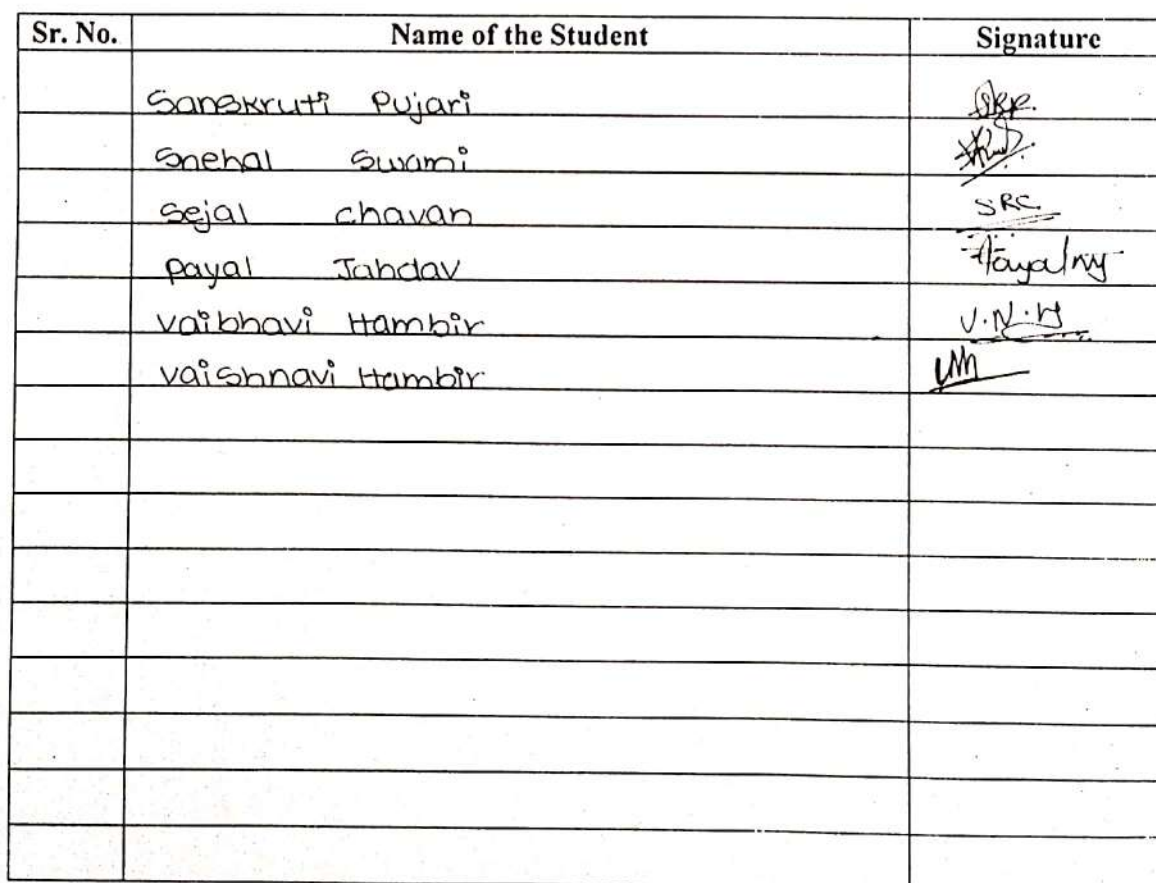 Sr. No. Name of the Student Signature
Sanskruti Pujari SRP.
Snehal Swami
Sejal chavan SRC
Payal Jahdav
Vaibhavi Hambir V.N.H
Vaishnavi Hambir